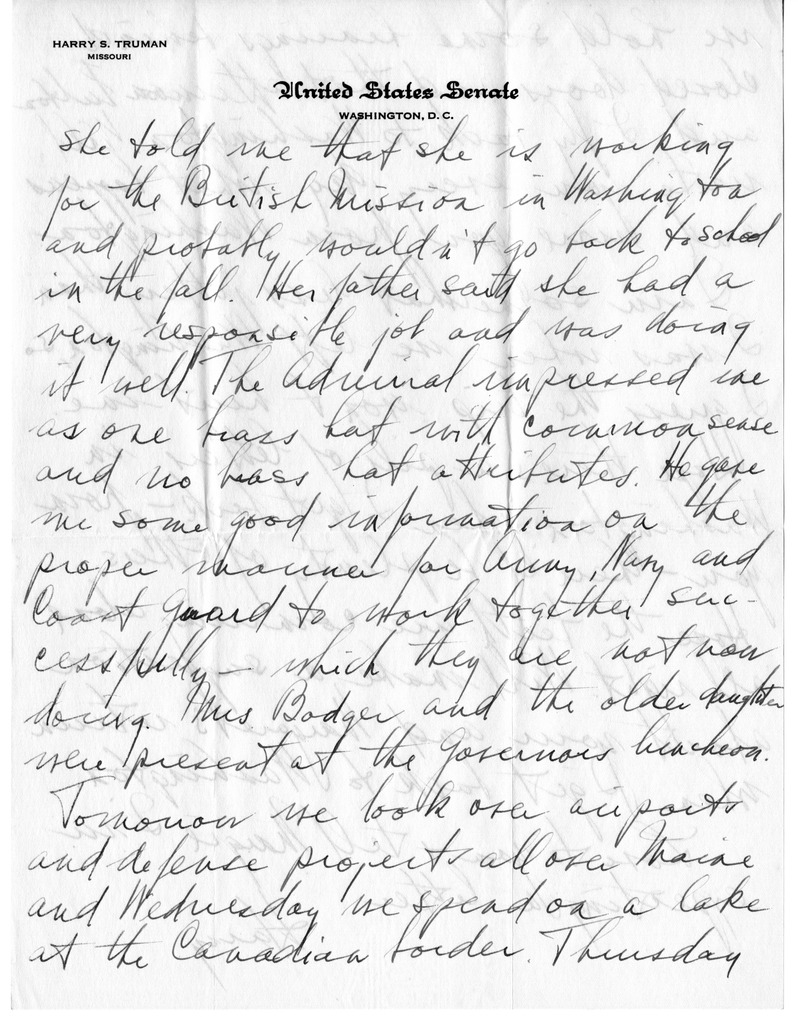 HARRY S. TRUMAN
MISSOURI
United States Senate
WASHINGTON, D. C.
she told me that she is working
for the British Mission in Washington
and probably wouldn't go back to school
in the fall. Her father said she had a
very responsible job and was doing
it well. The Admiral impressed me
as one brass hat with common sense
and no brass hat attributes. He gave
me some good information on the
proper manner for Army, Navy and
Coast Guard to work together suc-
cessfully – which they are not now
doing. Mrs. Badger and the older daughter
were present at the Governors luncheon.
Tomorrow we look over airports
and defense projects all over Maine
and Wednesday we spend on a lake
at the Canadian border. Thursday